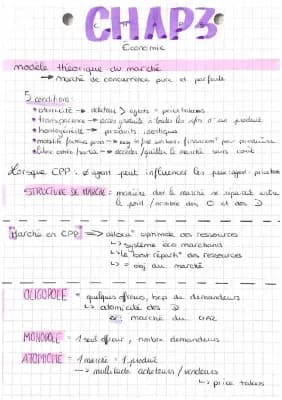 CHAP3
Economie
modèle théorique du marché
→ marché de concurrence pure et parfaite
5 conditions
• atomicité → agents = price takers
• transparence → accès gratuit à toutes les infos d'un produit
• homogénéité → produits identiques
• libre entrée/sortie → accéder/quitter le marché sans coût
Lorsque CPP : ∅ agent peut influencer les prix
STRUCTURE DE MARCHÉ = manière dont le marché se répartit entre
le poids/nombre des O et des D
Marché en CPP ⟹ allocat° optimale des ressources
↳ système éco marchand
↳ le "best répartit° des ressources
↳ = obj du marché
OLIGOPOLE = quelques offreurs, bcp de demandeurs
↳ atomicité des D
ex : marché du GAZ
MONOPOLE = 1 seul offreur, nombre demandeurs
ATOMICITÉ = 1 marché = 1 produit
↳ multitude acheteurs / vendeurs
↳ price takers